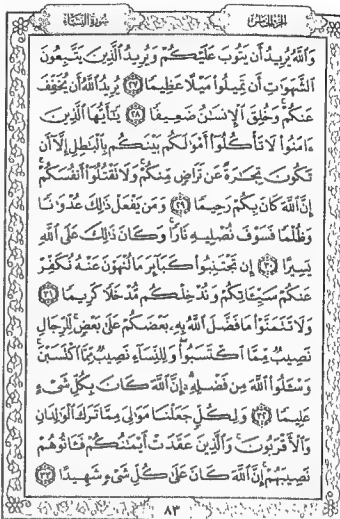 الجزء الخامس
سورة النساء
وَٱللَّهُ يُرِيدُ أَن يَتُوبَ عَلَيْكُمْ وَيُرِيدُ ٱلَّذِينَ يَتَّبِعُونَ
ٱلشَّهَوَٰتِ أَن تَمِيلُوا۟ مَيْلًا عَظِيمًا ٢٧ يُرِيدُ ٱللَّهُ أَن يُخَفِّفَ
عَنكُمْ وَخُلِقَ ٱلْإِنسَٰنُ ضَعِيفًا ٢٨ يَٰٓأَيُّهَا ٱلَّذِينَ
ءَامَنُوا۟ لَا تَأْكُلُوٓا۟ أَمْوَٰلَكُم بَيْنَكُم بِٱلْبَٰطِلِ إِلَّآ أَن
تَكُونَ تِجَٰرَةً عَن تَرَاضٍ مِّنكُمْ وَلَا تَقْتُلُوٓا۟ أَنفُسَكُمْ
إِنَّ ٱللَّهَ كَانَ بِكُمْ رَحِيمًا ٢٩ وَمَن يَفْعَلْ ذَٰلِكَ عُدْوَٰنًا
وَظُلْمًا فَسَوْفَ نُصْلِيهِ نَارًا وَكَانَ ذَٰلِكَ عَلَى ٱللَّهِ
يَسِيرًا ٣٠ إِن تَجْتَنِبُوا۟ كَبَآئِرَ مَا تُنْهَوْنَ عَنْهُ نُكَفِّرْ
عَنكُمْ سَيِّـَٔاتِكُمْ وَنُدْخِلْكُم مُّدْخَلًا كَرِيمًا ٣١
وَلَا تَتَمَنَّوْا۟ مَا فَضَّلَ ٱللَّهُ بِهِۦ بَعْضَكُمْ عَلَىٰ بَعْضٍ لِّلرِّجَالِ
نَصِيبٌ مِّمَّا ٱكْتَسَبُوا۟ وَلِلنِّسَآءِ نَصِيبٌ مِّمَّا ٱكْتَسَبْنَ
وَسْـَٔلُوا۟ ٱللَّهَ مِن فَضْلِهِۦٓ إِنَّ ٱللَّهَ كَانَ بِكُلِّ شَىْءٍ
عَلِيمًا ٣٢ وَلِكُلٍّ جَعَلْنَا مَوَٰلِىَ مِمَّا تَرَكَ ٱلْوَٰلِدَانِ
وَٱلْأَقْرَبُونَ وَٱلَّذِينَ عَقَدَتْ أَيْمَٰنُكُمْ فَـَٔاتُوهُمْ
نَصِيبَهُمْ إِنَّ ٱللَّهَ كَانَ عَلَىٰ كُلِّ شَىْءٍ شَهِيدًا ٣٣
٨٣